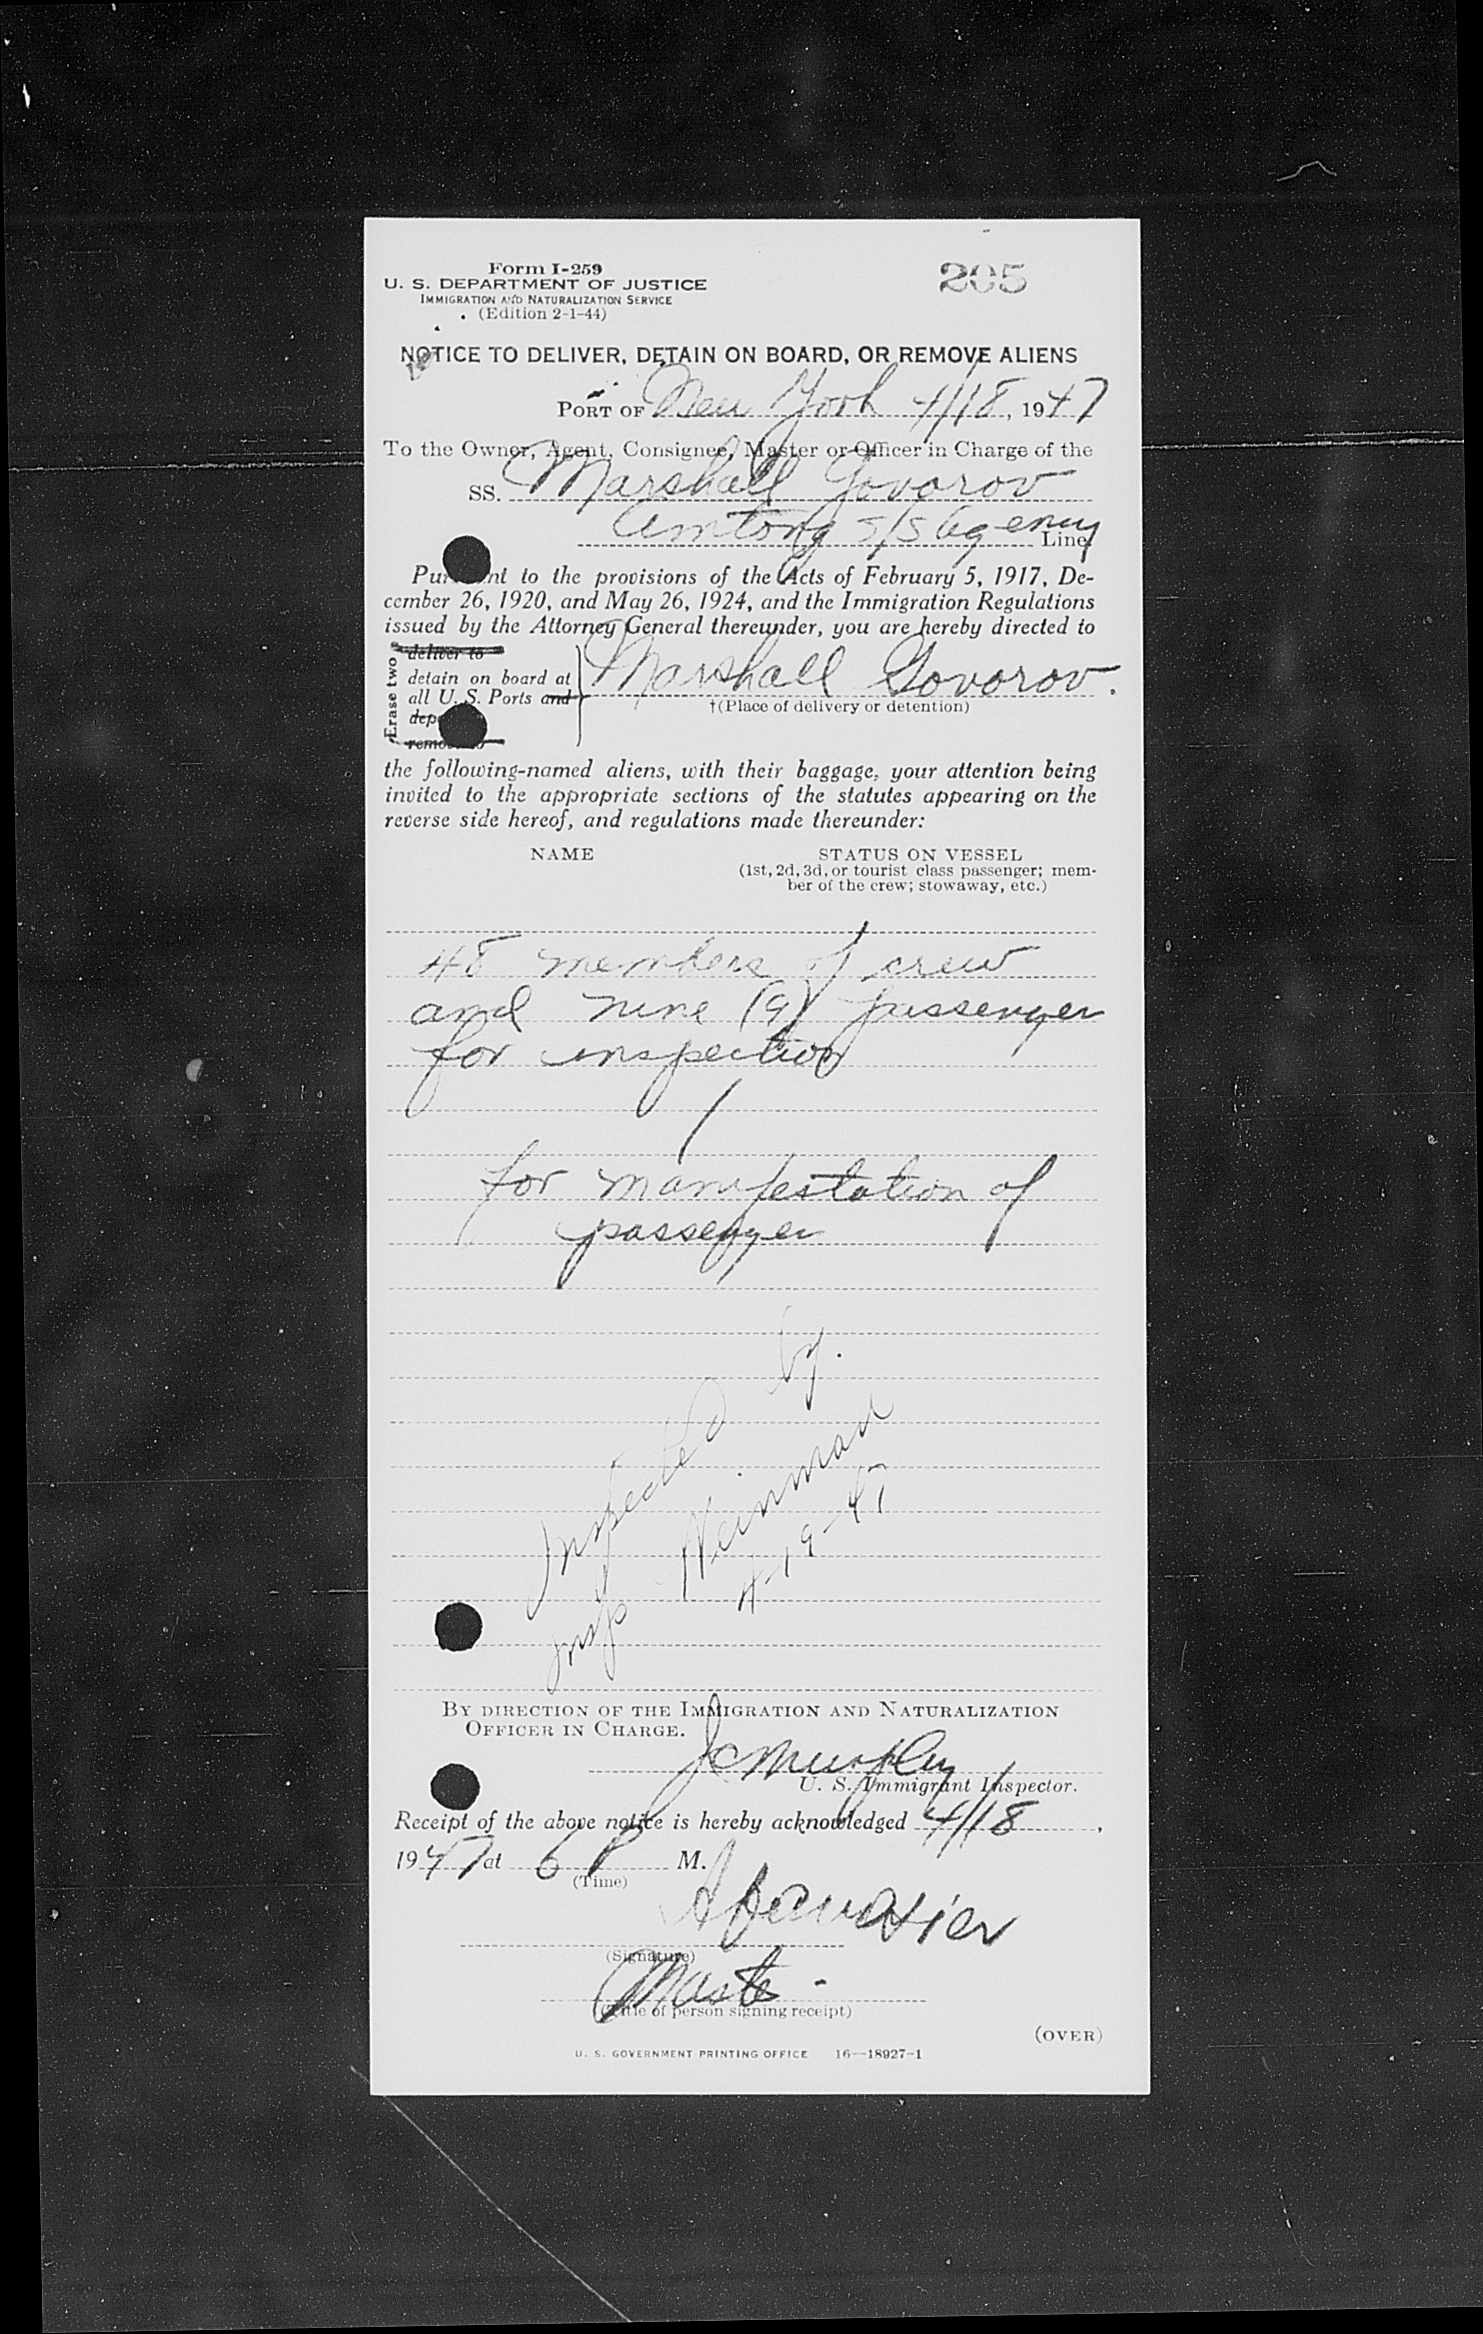 Form I-259
U. S. DEPARTMENT OF JUSTICE
IMMIGRATION AND NATURALIZATION SERVICE
(Edition 2-1-44)
205
NOTICE TO DELIVER, DETAIN ON BOARD, OR REMOVE ALIENS
PORT OF New York 4/18, 1947
To the Owner, Agent, Consignee, Master or Officer in Charge of the
SS. Marshall Govorov
Amtorg S/S Agency Line
Pursuant to the provisions of the Acts of February 5, 1917, De-
cember 26, 1920, and May 26, 1924, and the Immigration Regulations
issued by the Attorney General thereunder, you are hereby directed to
Erase two
deliver to
detain on board at
all U. S. Ports and
remove to
Marshall Govorov.
†(Place of delivery or detention)
the following-named aliens, with their baggage, your attention being
invited to the appropriate sections of the statutes appearing on the
reverse side hereof, and regulations made thereunder:
NAME STATUS ON VESSEL
(1st, 2d, 3d, or tourist class passenger; mem-
ber of the crew; stowaway, etc.)
48 members of crew
and nine (9) passenger
for inspection
/
for manifestation of
passenger
Inspected by.
Insp
4-19-47
BY DIRECTION OF THE IMMIGRATION AND NATURALIZATION
OFFICER IN CHARGE.
JC Murphy
U. S. Immigrant Inspector.
Receipt of the above notice is hereby acknowledged 4/18,
1947 at 6 P M.
(Time)
(Signature)
Master
(Title of person signing receipt)
(OVER)
U. S. GOVERNMENT PRINTING OFFICE 16—18927-1